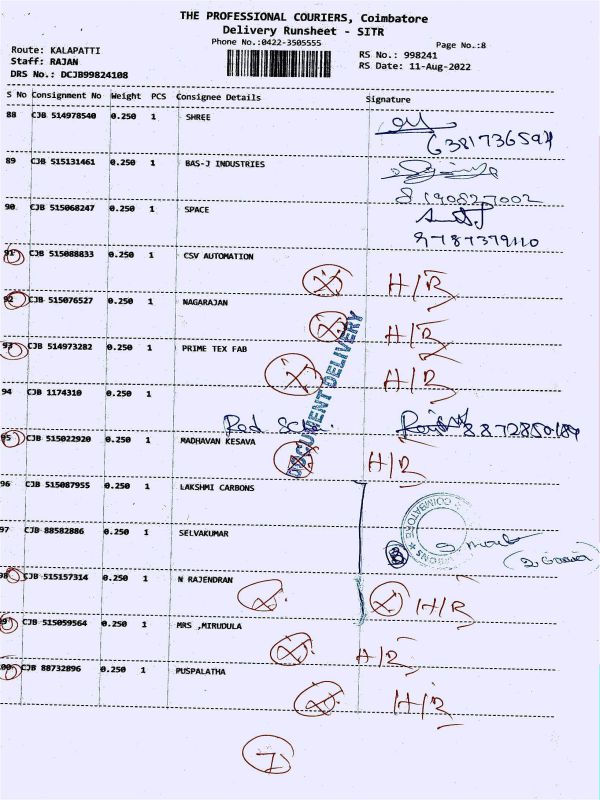 THE PROFESSIONAL COURIERS, Coimbatore
Delivery Runsheet - SITR
Phone No.:0422-3505555
Page No.:8
Route: KALAPATTI
RS No.: 998241
Staff: RAJAN
RS Date: 11-Aug-2022
DRS No.: DCJB99824108
S No Consignment No Weight PCS Consignee Details Signature
88 CJB 514978540 0.250 1 SHREE
6381736594
89 CJB 515131461 0.250 1 BAS-J INDUSTRIES
8190827002
90 CJB 515068247 0.250 1 SPACE
9787379110
91 CJB 515088833 0.250 1 CSV AUTOMATION
H/R
92 CJB 515076527 0.250 1 NAGARAJAN
H/R
93 CJB 514973282 0.250 1 PRIME TEX FAB
H/R
DOCUMENT DELIVERY
94 CJB 1174310 0.250 1
Red
95 CJB 515022920 0.250 1 MADHAVAN KESAVA
H/R
96 CJB 515087955 0.250 1 LAKSHMI CARBONS
COIMBATORE
97 CJB 88582886 0.250 1 SELVAKUMAR
98 CJB 515157314 0.250 1 N RAJENDRAN
H/R
99 CJB 515059564 0.250 1 MRS ,MIRUDULA
H/R
100 CJB 88732896 0.250 1 PUSPALATHA
H/R
7